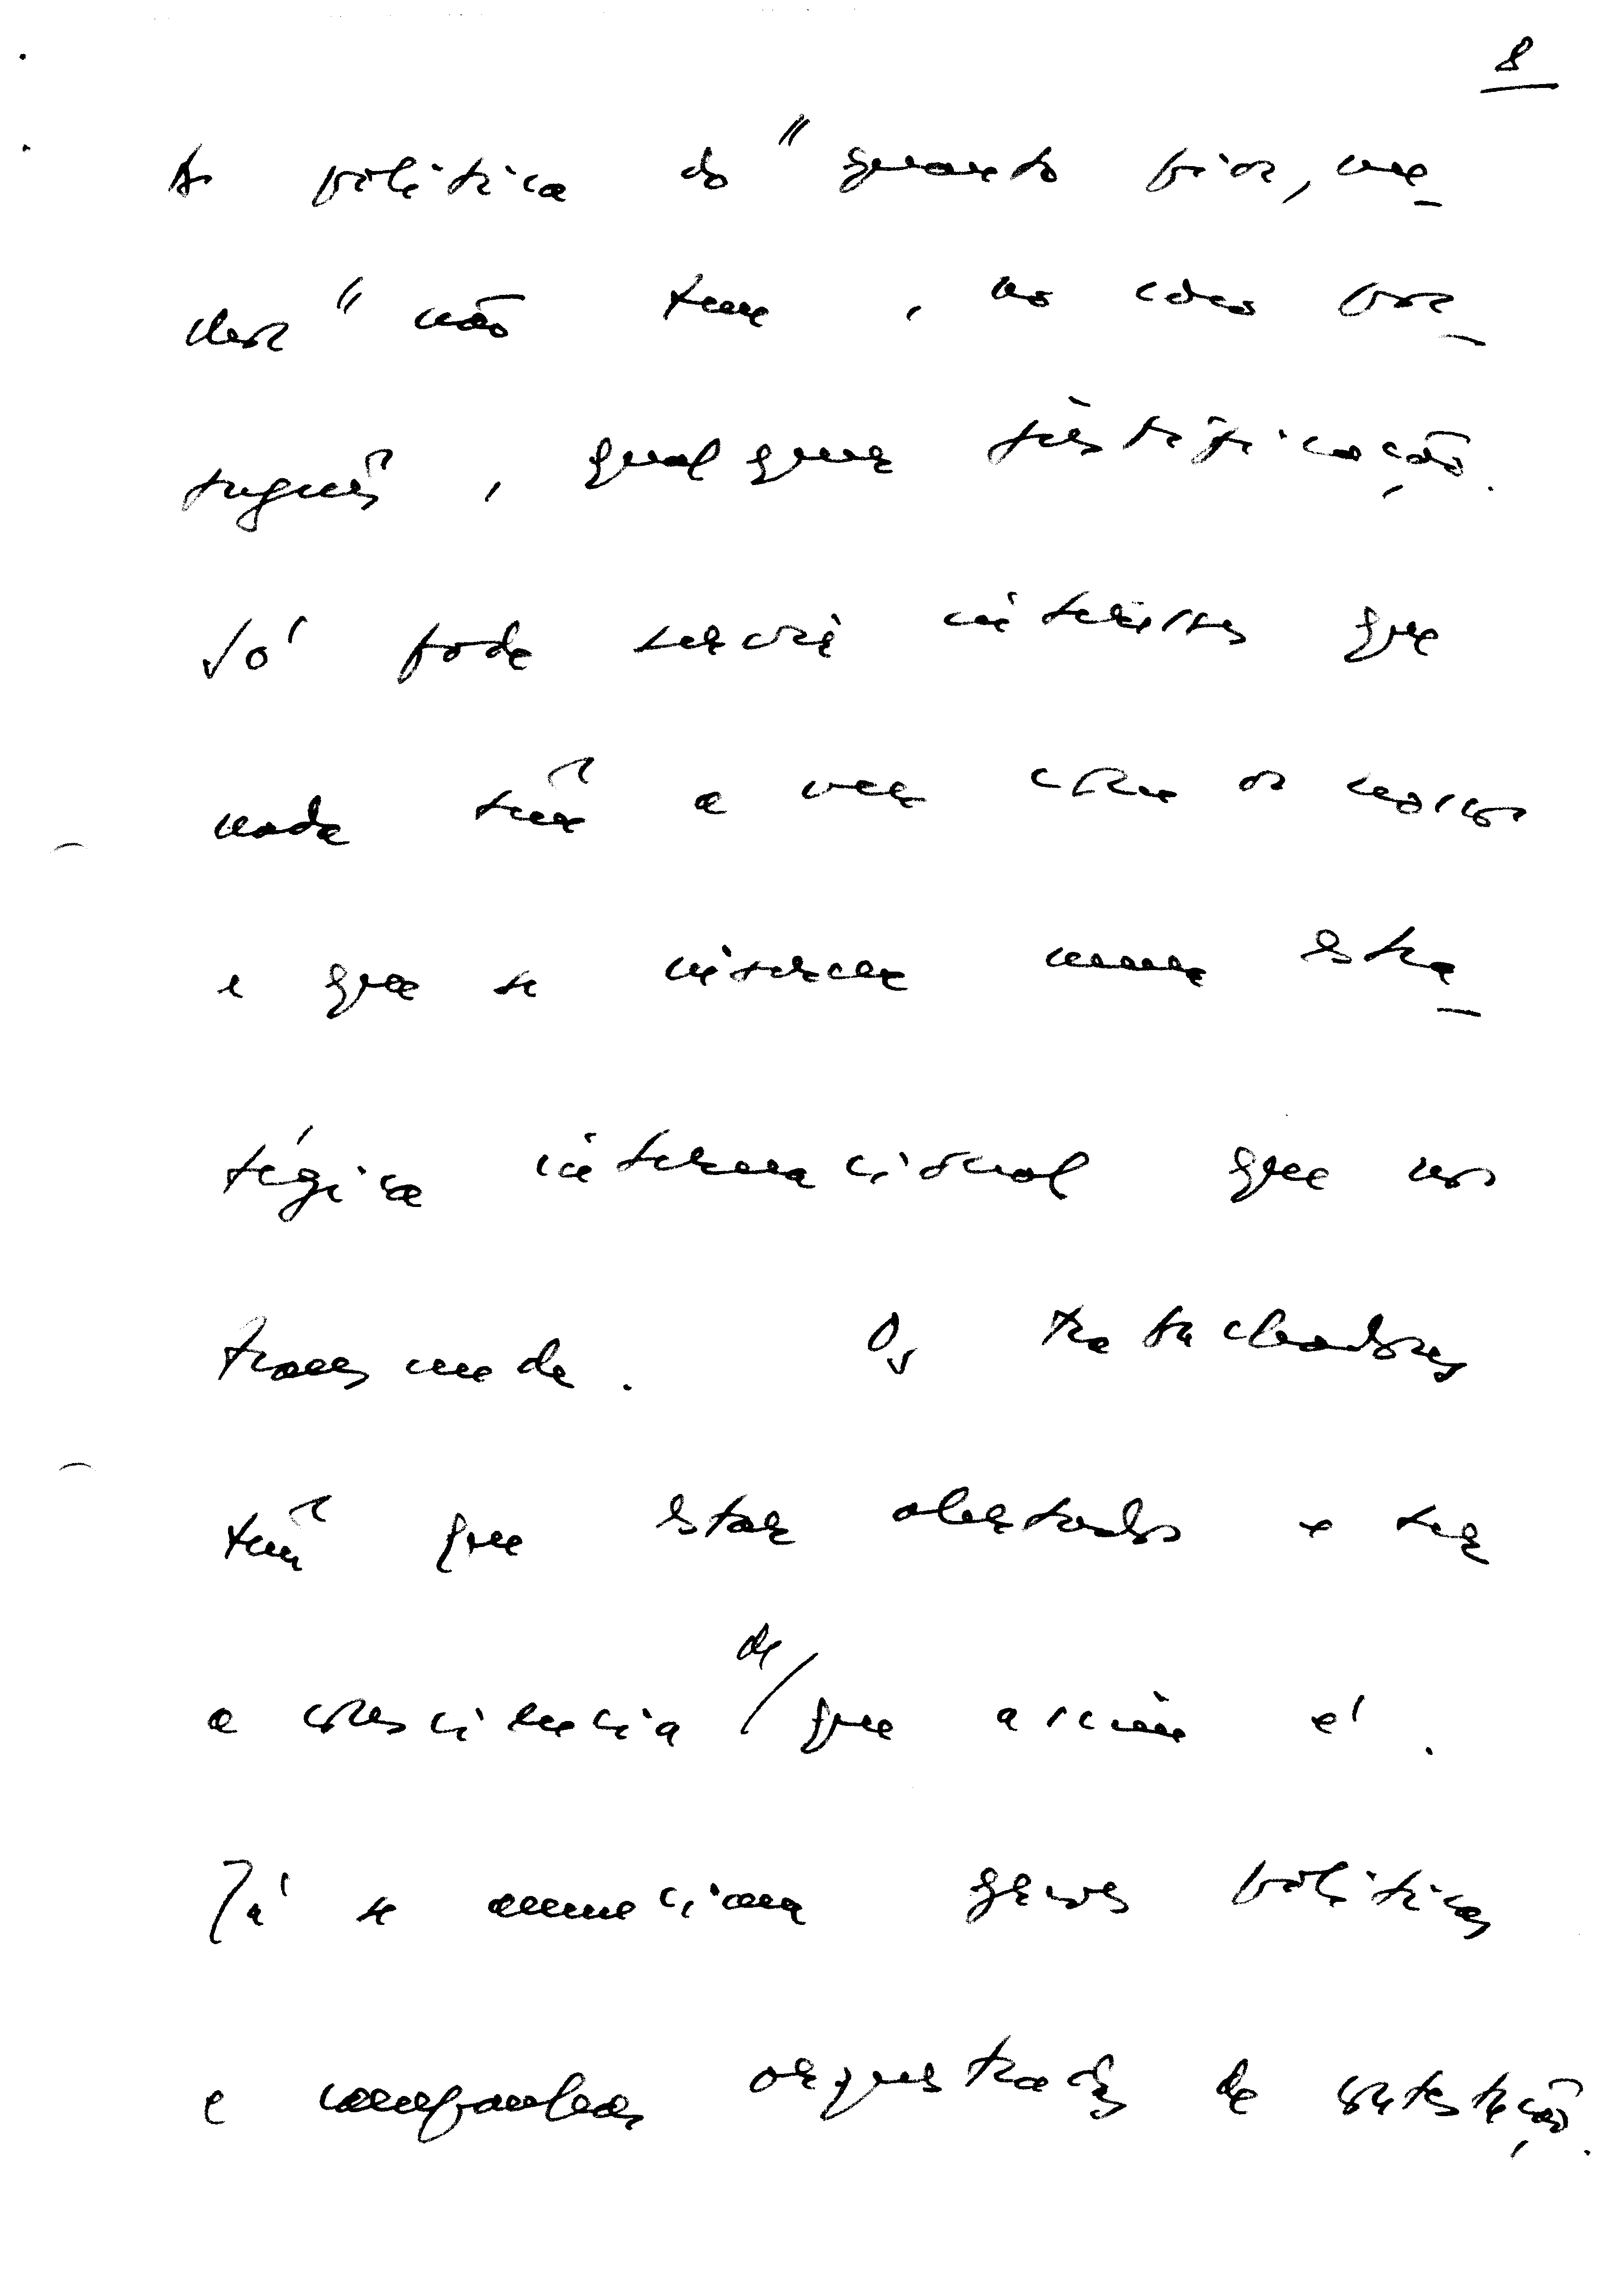 8
A política do "quanto pior, me-
lhor" não tem, no caso por-
tuguês, qualquer justificação.
Só pode servir interesses que
nada têm a ver com os nossos
e que se inserem numa estra-
tégica internacional que nos
transcende. Os trabalhadores
têm que estar alertados e ter
a consciência de/ que assim é.
Já se anunciam greves políticas
e campanhas orquestradas de contestação.